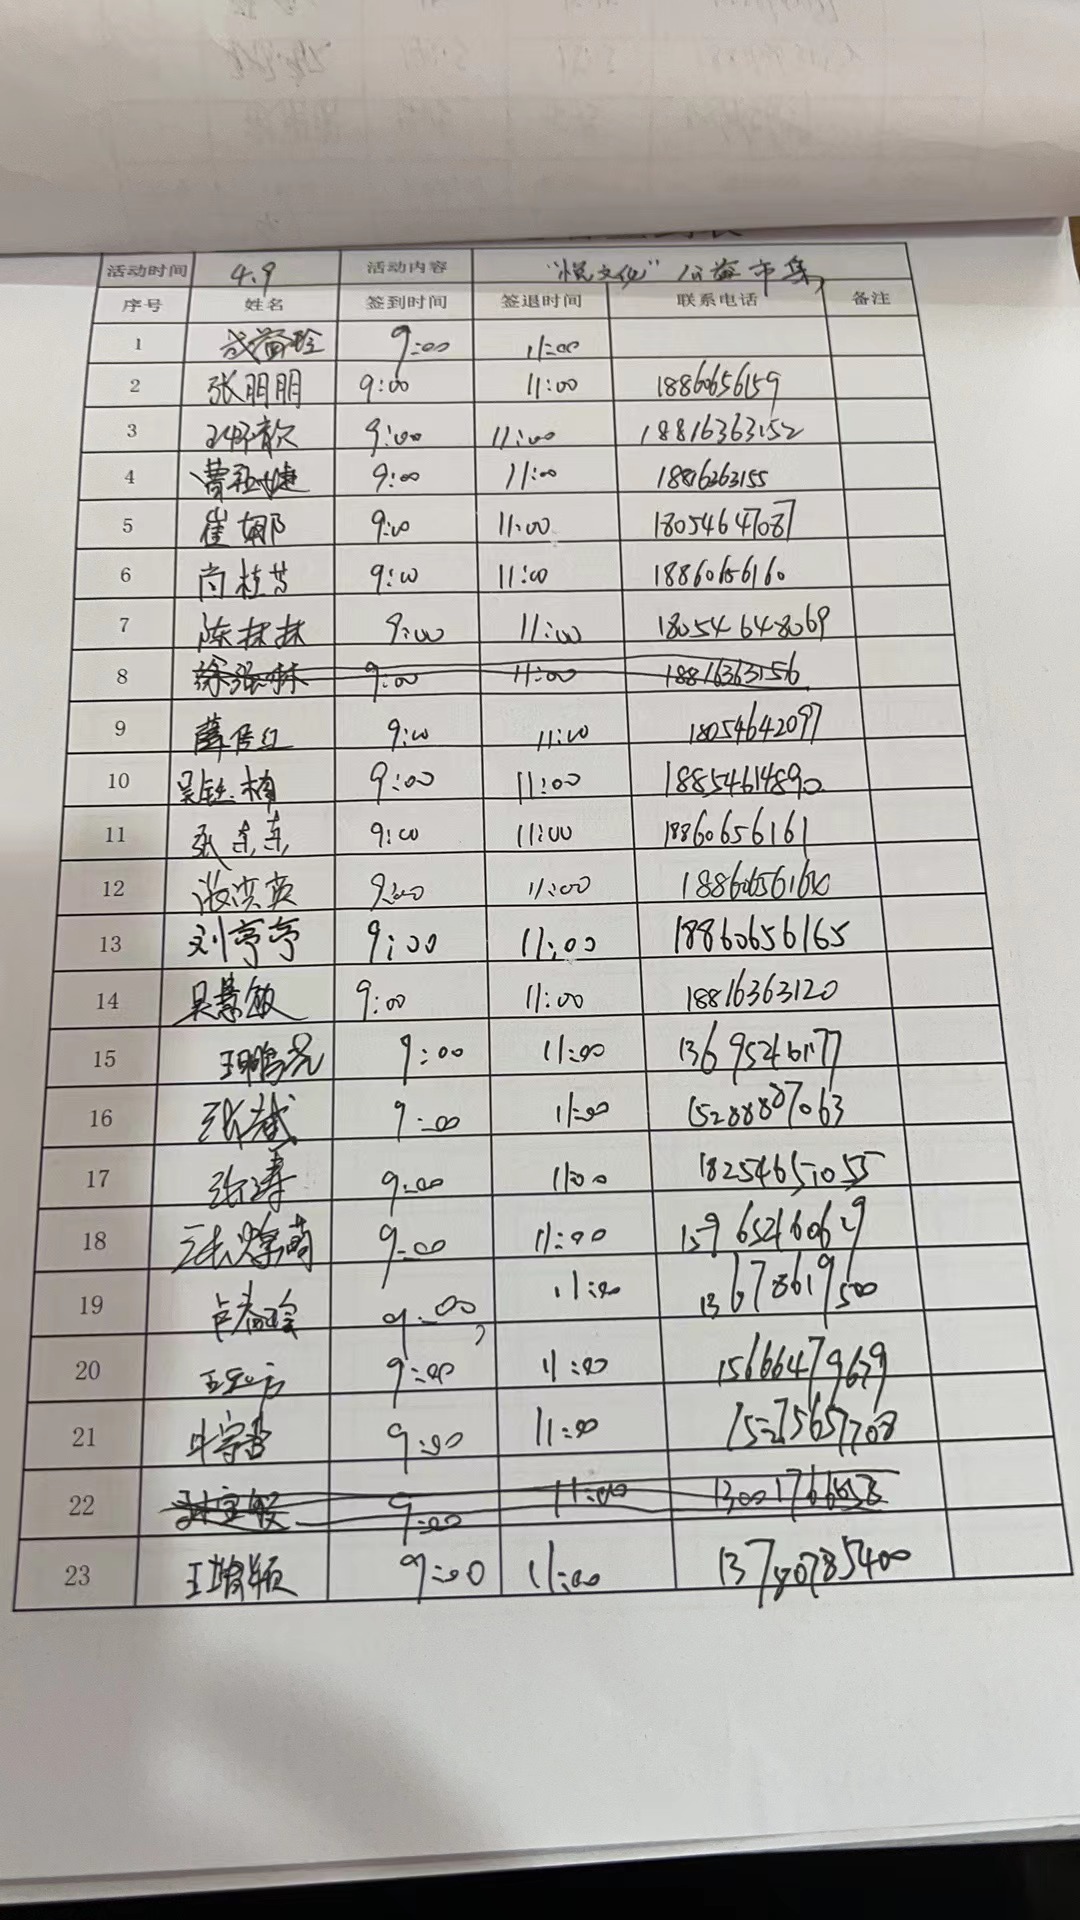 活动时间 4.9 活动内容 "悦文化"公益市集
序号 姓名 签到时间 签退时间 联系电话 备注
1 9:00 11:00
2 张朋朋 9:00 11:00 18860656159
3 9:00 11:00 18816363152
4 9:00 11:00 18816363155
5 崔娜 9:00 11:00 18054647087
6 尚桂芳 9:00 11:00 18860656160
7 陈林林 9:00 11:00 18054648069
8 徐张林 9:00 11:00 18816363156
9 薛传红 9:00 11:00 18054642097
10 吴钰楠 9:00 11:00 18854614890
11 张东东 9:00 11:00 18860656161
12 洪英 9:00 11:00
13 刘亭亭 9:00 11:00 18860656165
14 吴慧敏 9:00 11:00 18816363120
15 9:00 11:00 13695246177
16 张斌 9:00 11:00 15288887063
17 张涛 9:00 11:00 18254651055
18 9:00 11:00
19 9:00 11:00 13678619500
20 9:00 11:00 15666479679
21 9:00 11:00 15275657708
22 9:00 11:00
23 9:00 11:00 13780785400